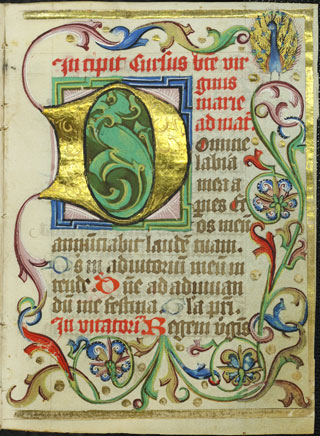 In cipit Cursus bte vir
ginis
marie
ad mat.
D omine
labia
mea a
peries Et
os meū
annūciabit laudē tuam.
Ds in adiutoriū meū in
tende Dn̄e ad adiuuan
dū me festina Gla pr̄i.
In uitatoriū Regem v̄gis